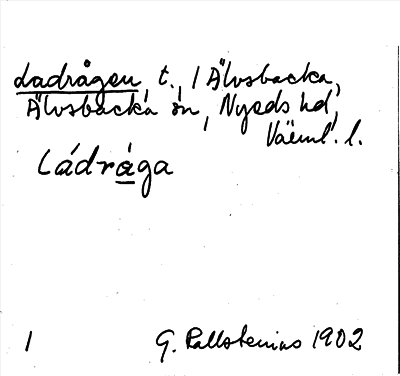 Ladrågen, t., / Älvsbacka,
Älvsbacka sn, Nyeds hd,
Värml. l.
Ládrága
1 G. Kallstenius 1902